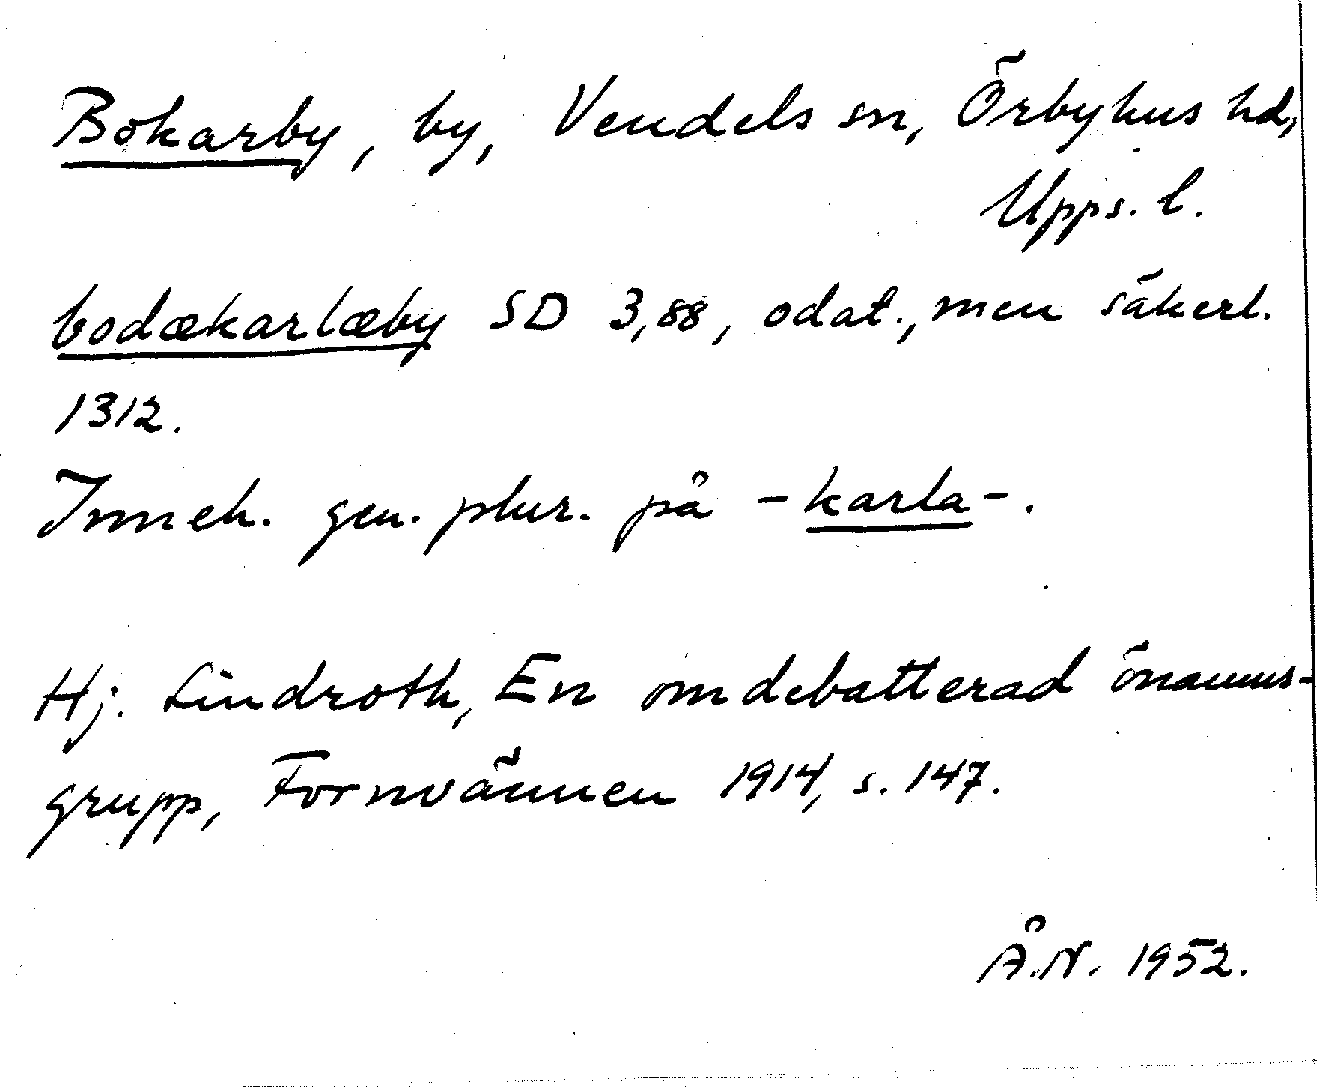 Bokarby, by, Vendels sn, Örbyhus hd,
Upps. l.
bodækarlæby SD 3,88, odat., men säkerl.
1312.
Inneh. gen. plur. på -karla-.
Hj. Lindroth, En omdebatterad önamns-
grupp, Fornvännen 1914, s. 147.
Å.N. 1952.